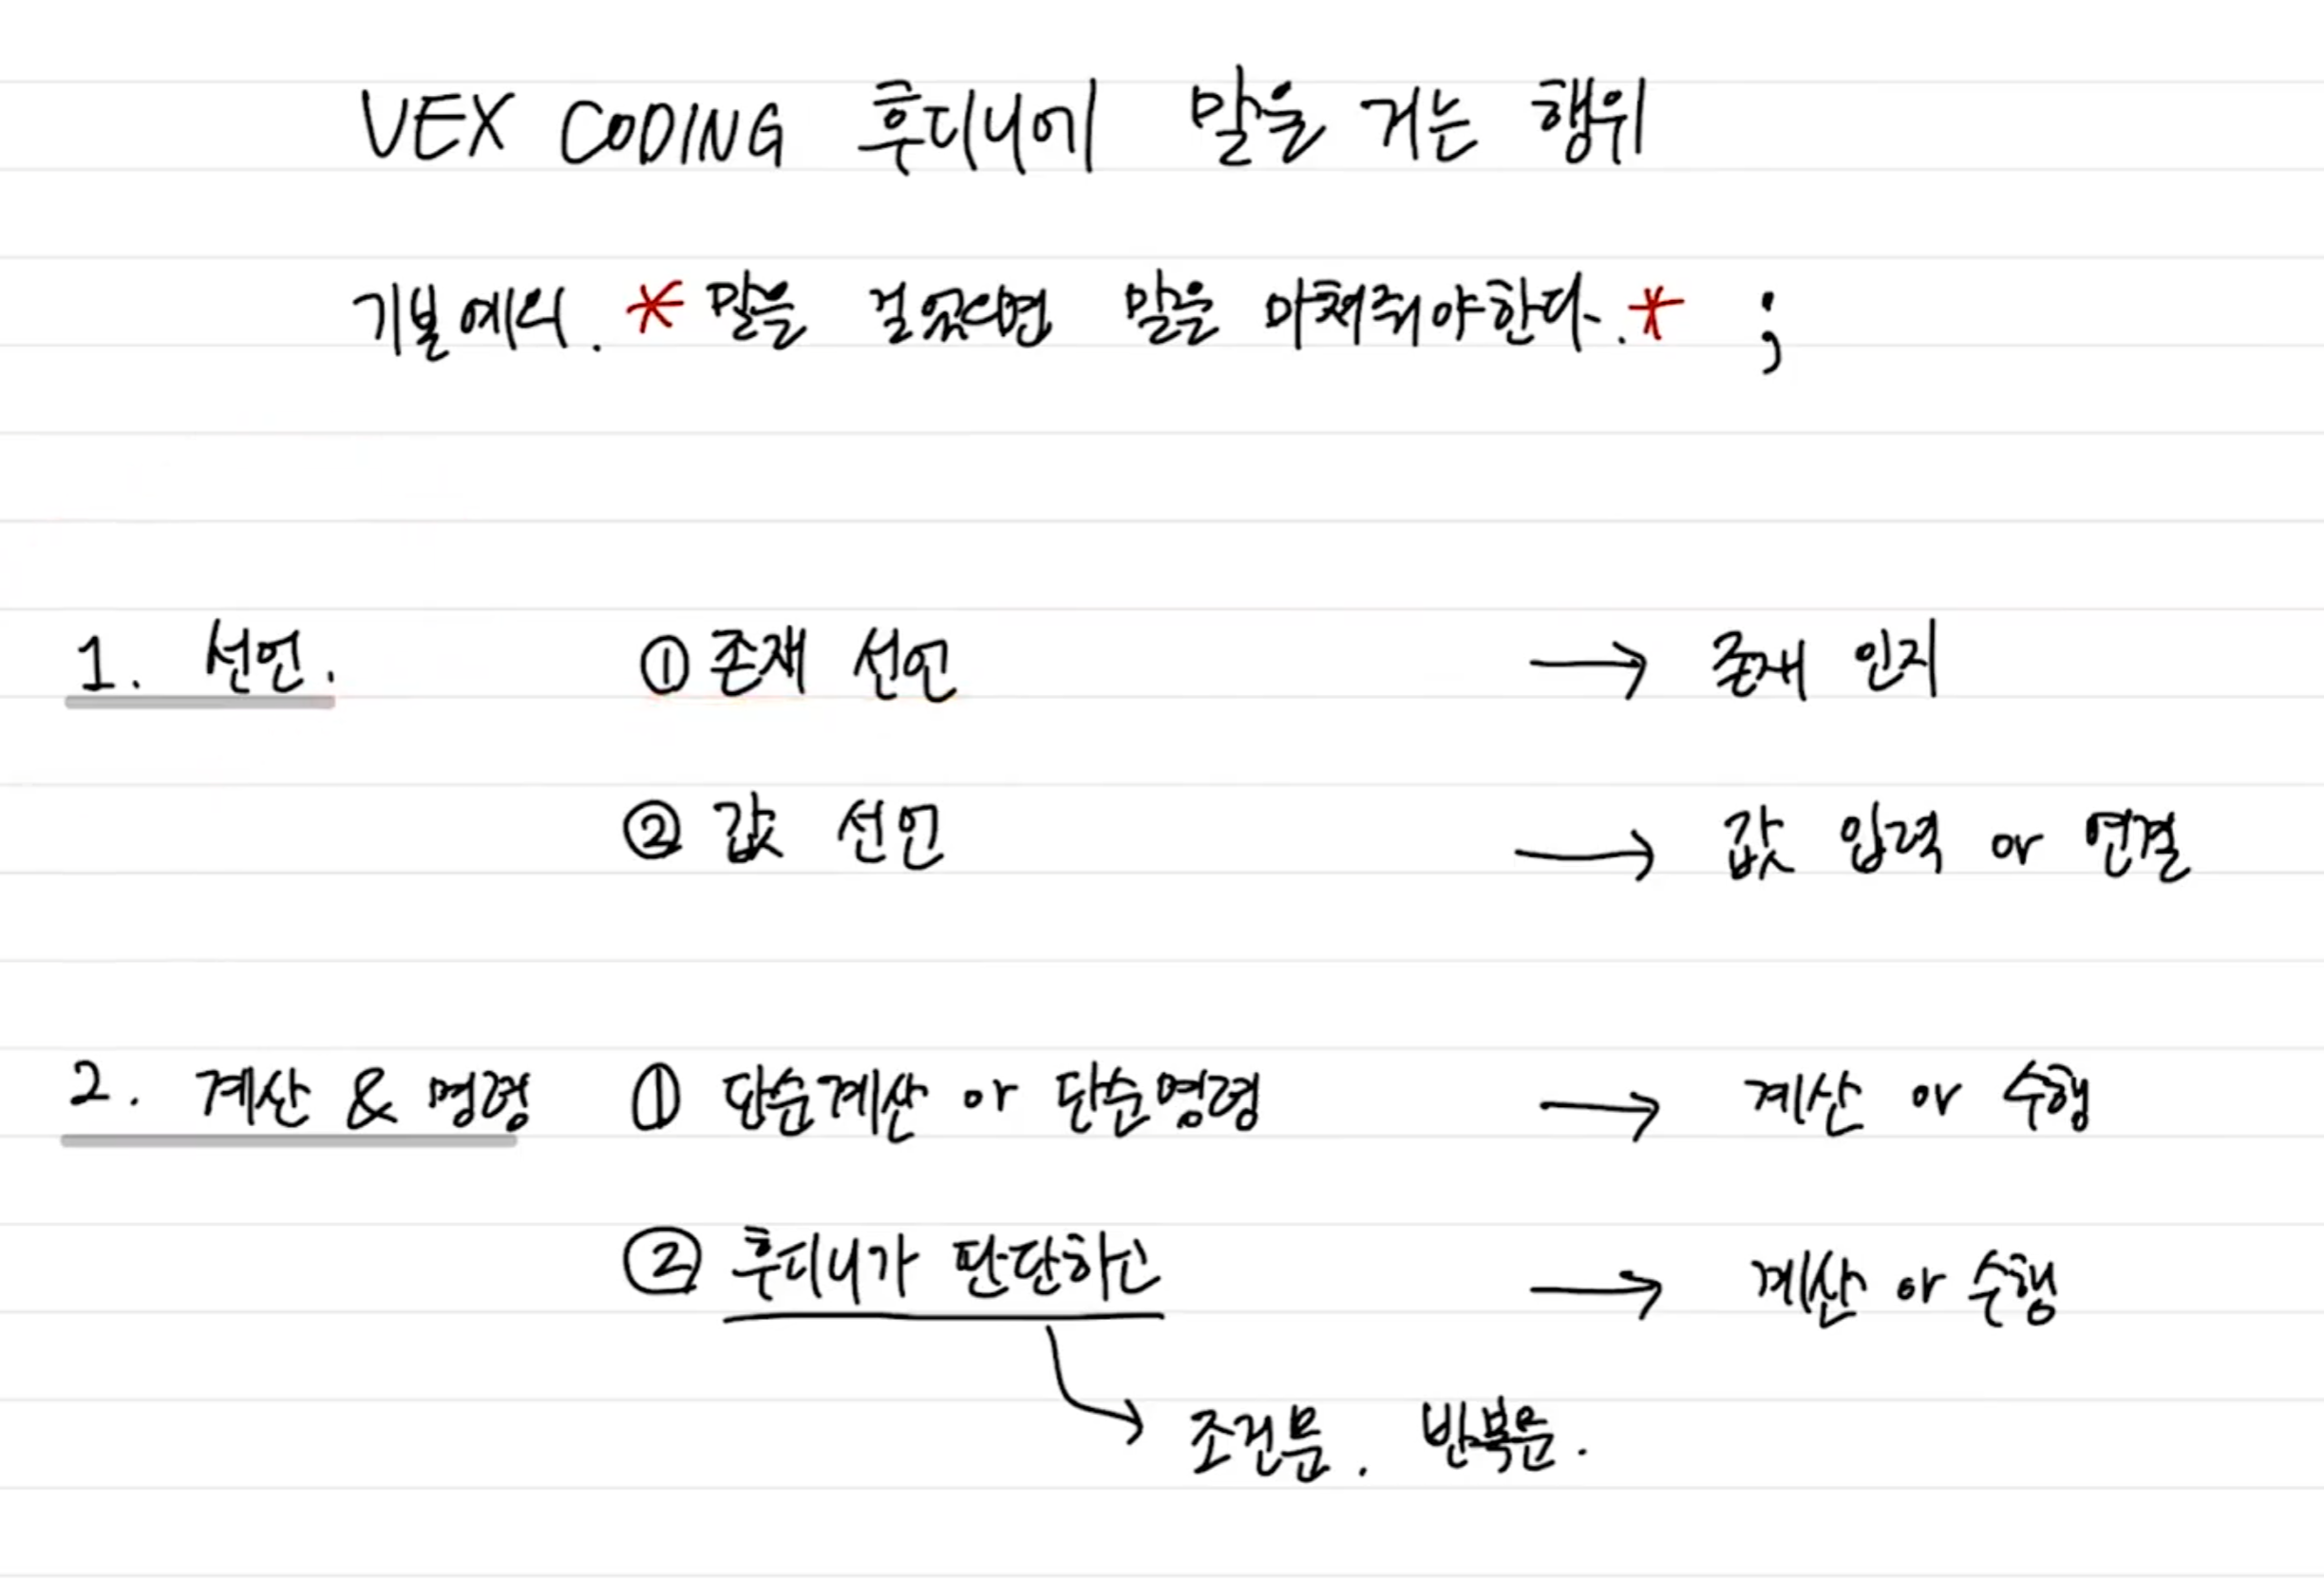 VEX CODING 후디니에 말을 거는 행위
기본예의. * 말을 걸었으면 말을 마쳐줘야한다. * ;
1. 선언. ① 존재 선언 → 존재 인지
② 값 선언 → 값 입력 or 연결
2. 계산 & 명령 ① 단순계산 or 단순명령 → 계산 or 수행
② 후디니가 판단하고 → 계산 or 수행
조건문. 반복문.